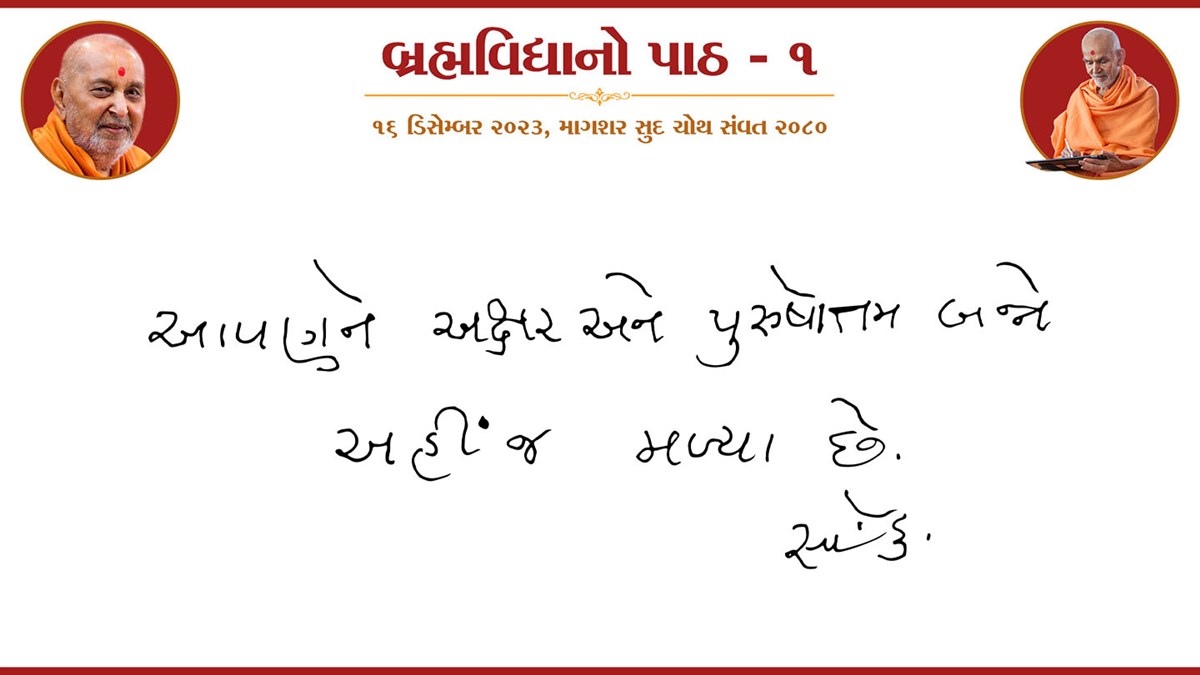 બ્રહ્મવિદ્યાનો પાઠ - ૧
૧૬ ડિસેમ્બર ૨૦૨૩, માગશર સુદ ચોથ સંવત ૨૦૮૦
આપણને અક્ષર અને પુરુષોત્તમ બન્ને
અહીં જ મળ્યા છે.